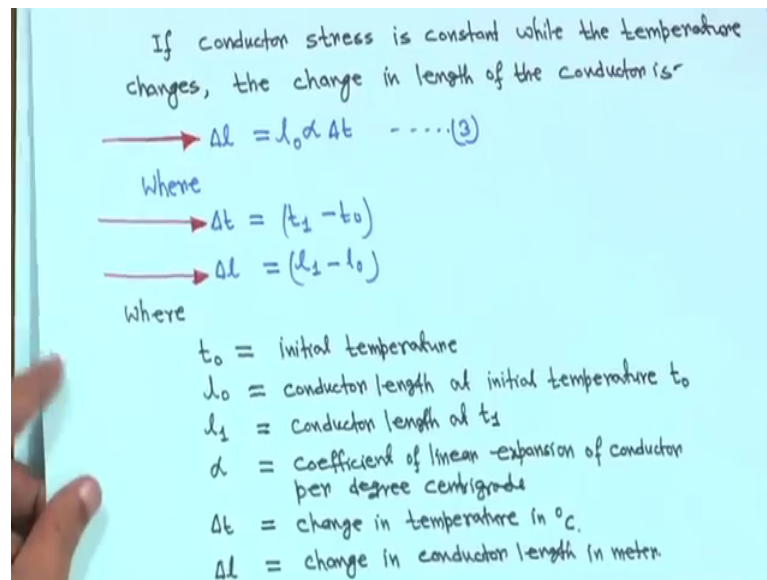 If conductor stress is constant while the temperature
changes, the change in length of the conductor is-
Δl = l₀ α Δt -----(3)
Where
Δt = (t₁ - t₀)
Δl = (l₁ - l₀)
where
t₀ = initial temperature
l₀ = conductor length at initial temperature t₀
l₁ = conductor length at t₁
α = coefficient of linear expansion of conductor
per degree centigrade
Δt = change in temperature in °C.
Δl = change in conductor length in meter.